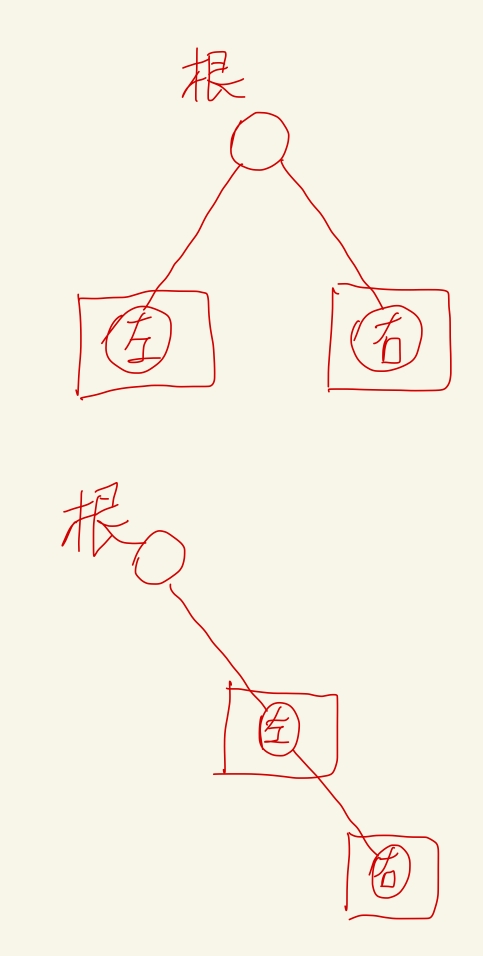 根
左 右
根
左
右